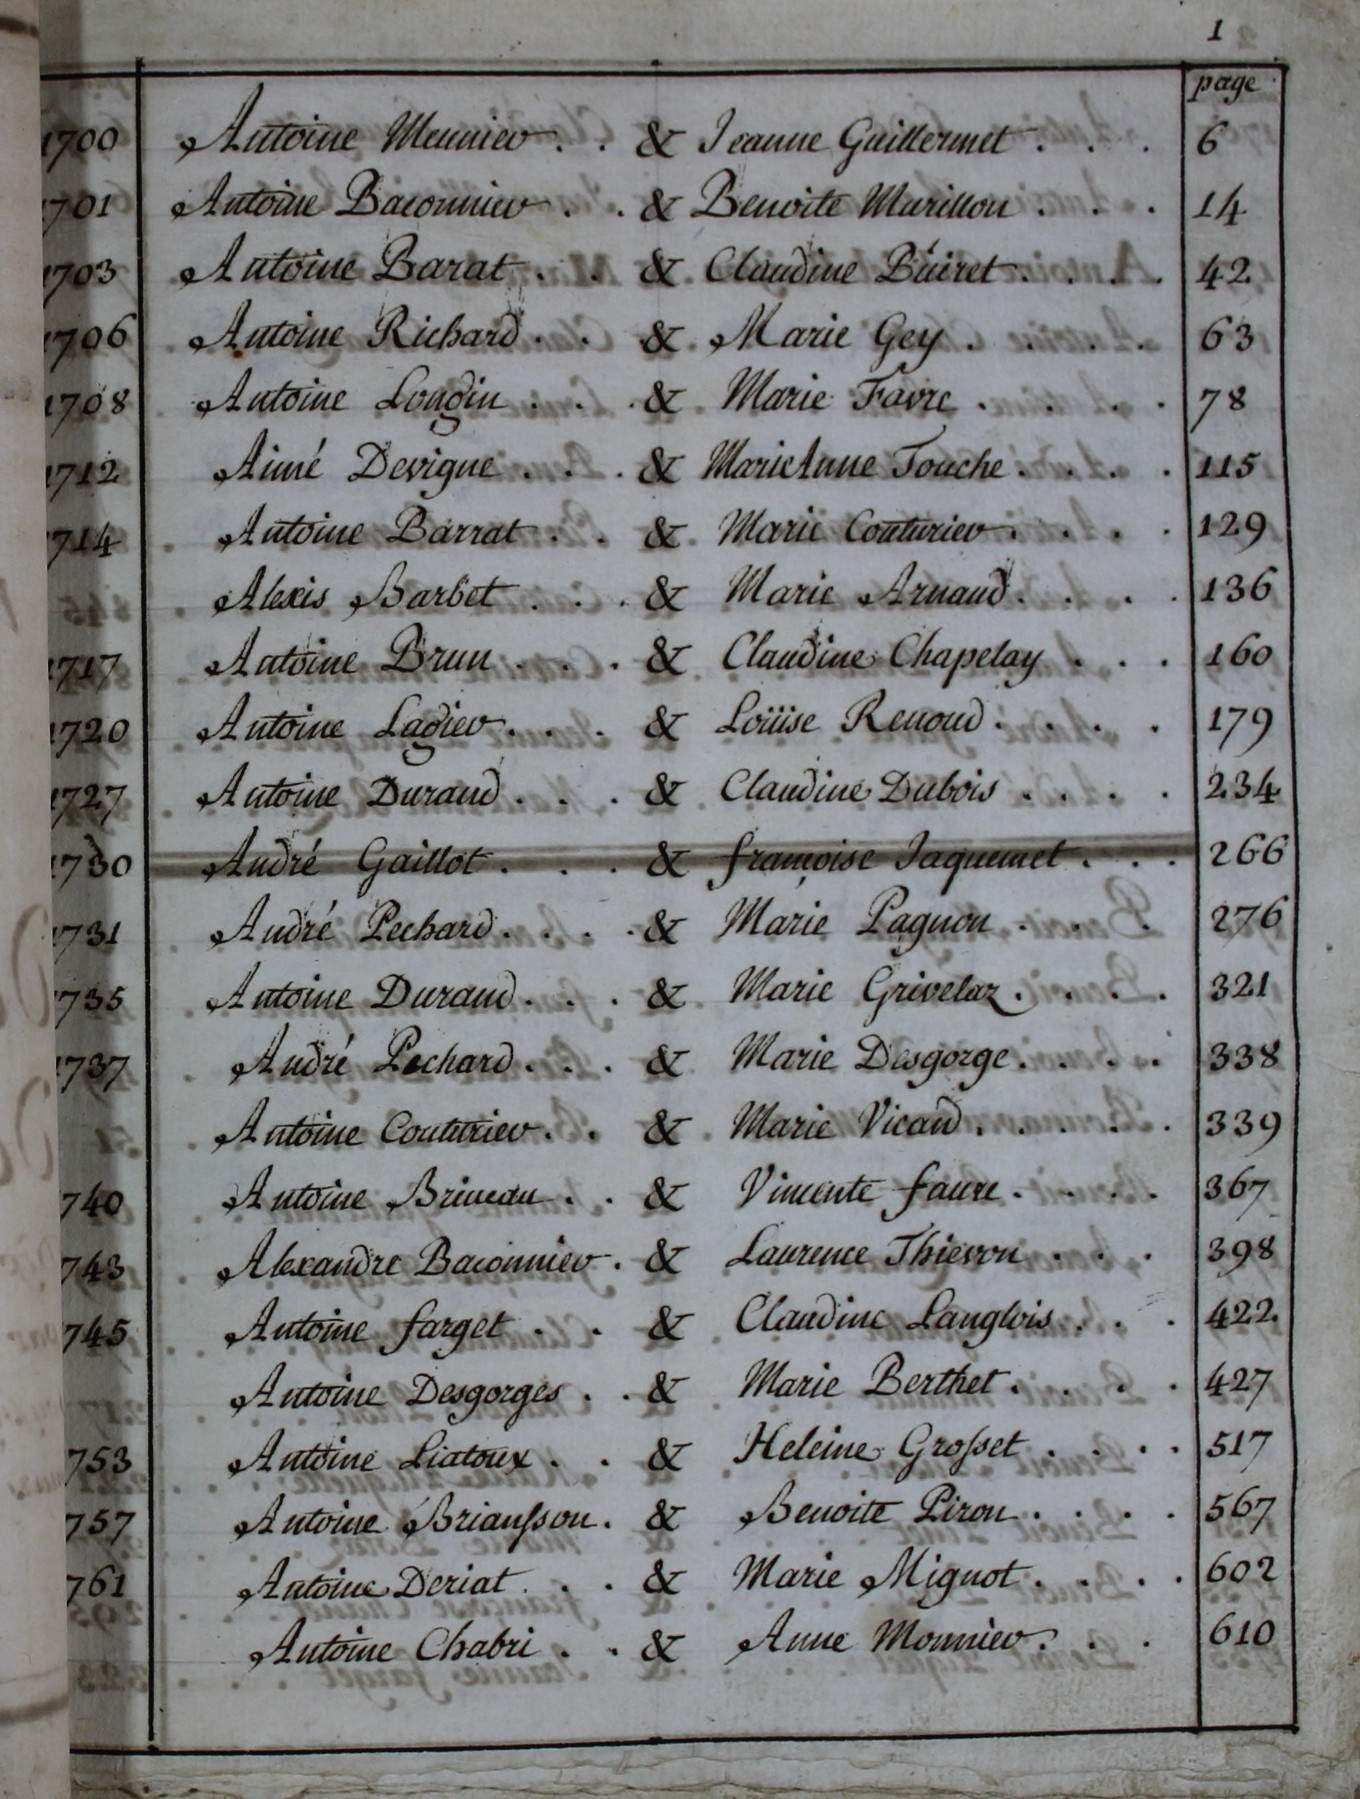 1
page
1700 Antoine Meunier . . & Jeanne Guillermet . . . 6
1701 Antoine Baconnier . . & Benoite Murillon . . . 14
1703 Antoine Barat . . & Claudine Béiret . . . . 42
1706 Antoine Richard . . & Marie Gey . . . . 63
1708 Antoine Longin . . . & Marie Favre . . . . 78
1712 Aimé Devigne . . . & Marie Anne Touche . . . . 115
1714 Antoine Barrat . . & Marie Couturier . . . . 129
Alexis Barbet . . . & Marie Arnaud . . . . 136
1717 Antoine Brun . . . & Claudine Chapelay . . . 160
1720 Antoine Lagier . . . & Loüise Renoud . . . . 179
1727 Antoine Durand . . . & Claudine Dubois . . . . 234
1730 André Gaillot . . . & françoise Jaquemet . . . 266
1731 André Pechard . . . . & Marie Pagnon . . . 276
1735 Antoine Durand . . . & Marie Grivelaz . . . . 321
1737 André Pechard . . . & Marie Desgorge . . . . 338
Antoine Couturier . . & Marie Vicard . . . . . 339
740 Antoine Bruneau . . & Vincente faure . . . . 367
743 Alexandre Baconnier . & Laurence Thievon . . . 398
745 Antoine farget . . & Claudine Langlois . . . 422
Antoine Desgorges . . & Marie Berthet . . . . 427
753 Antoine Liatoux . . & Heleine Grosset . . . . 517
757 Antoine Briansson . & Benoite Piron . . . . 567
761 Antoine Deriat . . . & Marie Mignot . . . . 602
Antoine Chabri . . & Anne Monnier . . . 610